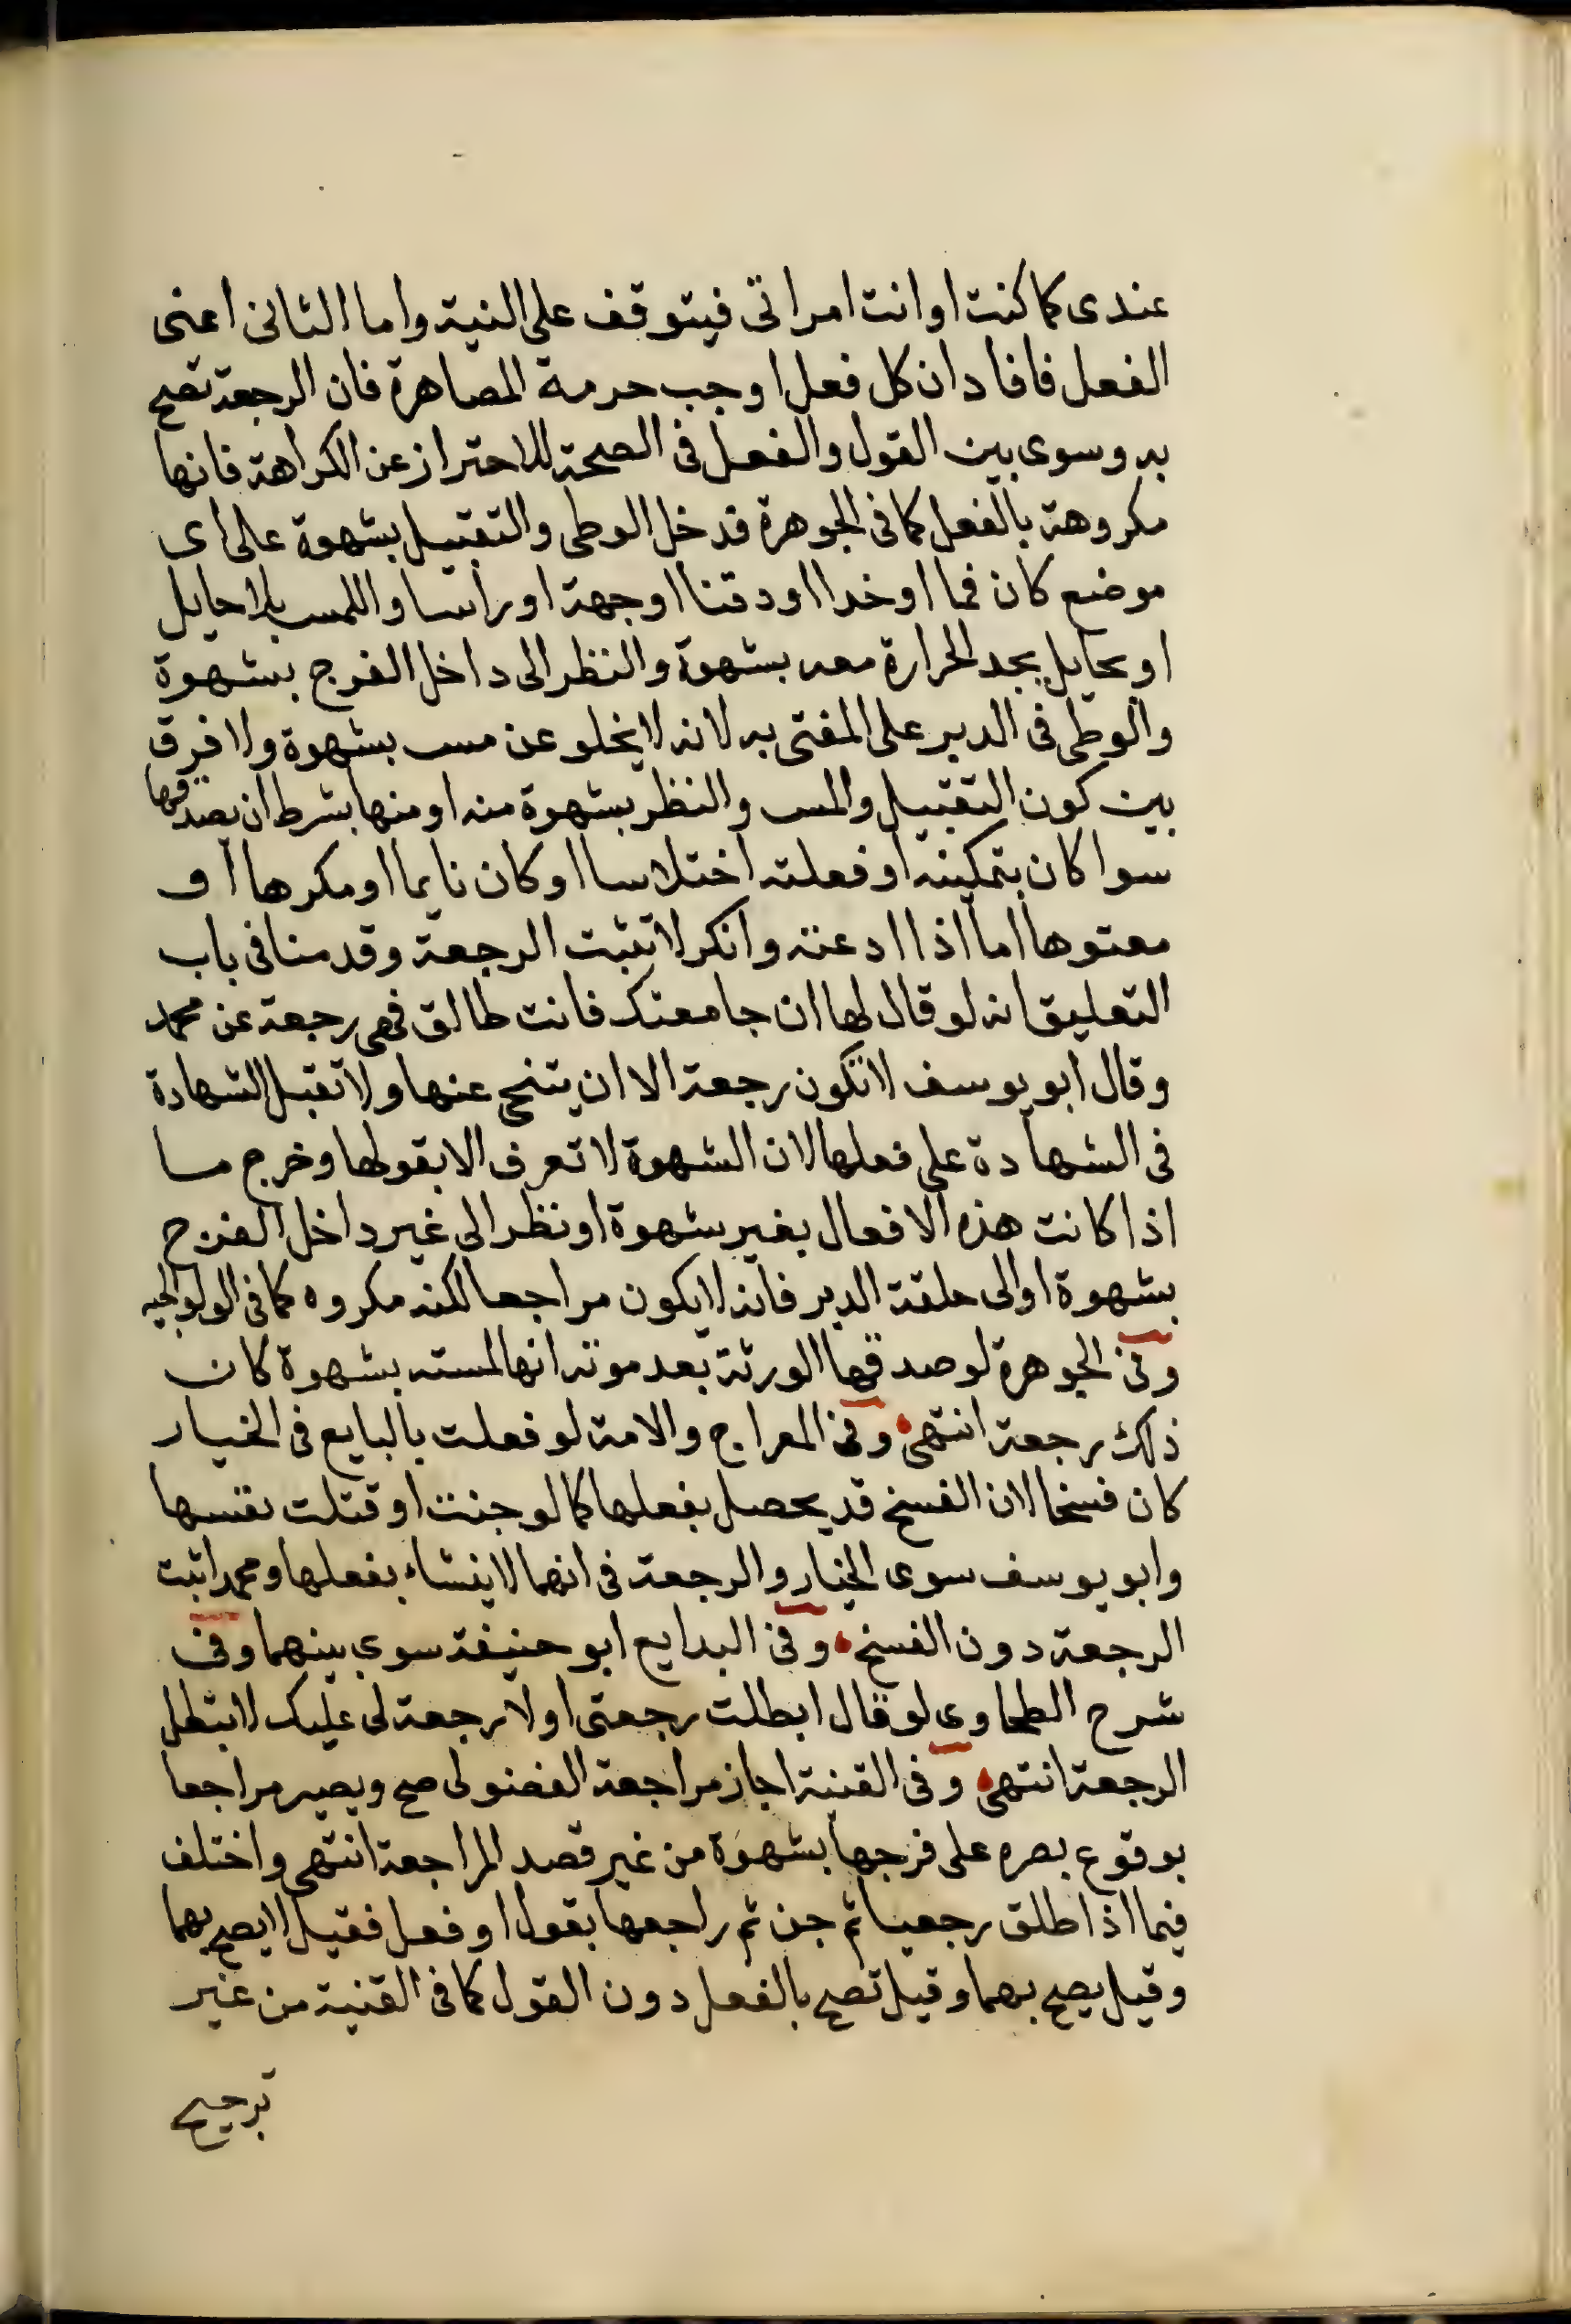 عندى كما كنت او انت امراتى فيتوقف على النية واما الثانى اعنى
الفعل فافاد ان كل فعل اوجب حرمة المصاهرة فان الرجعة تصح
به وسوى بين القول والفعل فى الصحة للاحتراز عن الكراهة فانها
مكروهة بالفعل كما فى الجوهرة فدخل الوطى والتقبيل بشهوة على اى
موضع كان فما او خدا او دقنا او جهة او راسا واللمس بلا حايل
او بحايل يجد الحرارة معه بشهوة والنظر الى داخل الفرج بشهوة
والوطى فى الدبر على المفتى به لانه لا يخلو عن مس بشهوة ولا فرق
بين كون التقبيل والمس والنظر بشهوة منه او منها بشرط ان يصدقها
سوا كان بتمكينه او فعلته اختلاسا او كان نايما او مكرها او
معتوها اما اذا ادعته وانكر لا تثبت الرجعة وقدمنا فى باب
التعليق انه لو قال لها ان جامعتك فانت طالق فهى رجعة عن محمد
وقال ابو يوسف لا تكون رجعة الا ان يتنحى عنها ولا تقبل الشهادة
فى الشهادة على فعلها لان الشهوة لا تعرف الا بقولها وخرج ما
اذا كانت هذه الافعال بغير شهوة او نظر الى غير داخل الفرج
بشهوة او الى حلقة الدبر فانه لا يكون مراجعا لكنه مكروه كما فى الولوالجيه
وفى الجوهرة لو صدقها الورثة بعد موته انها لمسته بشهوة كان
ذلك رجعة انتهى وفى المعراج والامة لو فعلت بالبايع فى الخيار
كان فسخا لان الفسخ قد يحصل بفعلها كما لو جنت او قتلت نفسها
وابو يوسف سوى الخيار والرجعة فى انهما لا ينشاء بفعلها ومحمد اثبت
الرجعة دون الفسخ وفى البدايع ابو حنيفة سوى بينهما وفى
شرح الطحاوى لو قال ابطلت رجعتى او لا رجعة لى عليك لا تبطل
الرجعة انتهى وفى القنية اجاز مراجعة الفضولى صح ويصير مراجعا
بوقوع بصره على فرجها بشهوة من غير قصد المراجعة انتهى واختلف
فيما اذا طلق رجعيا ثم جن ثم راجعها بقول او فعل فقيل لا يصح بهما
وقيل يصح بهما وقيل تصح بالفعل دون القول كما فى القنية من غير
ترجيح